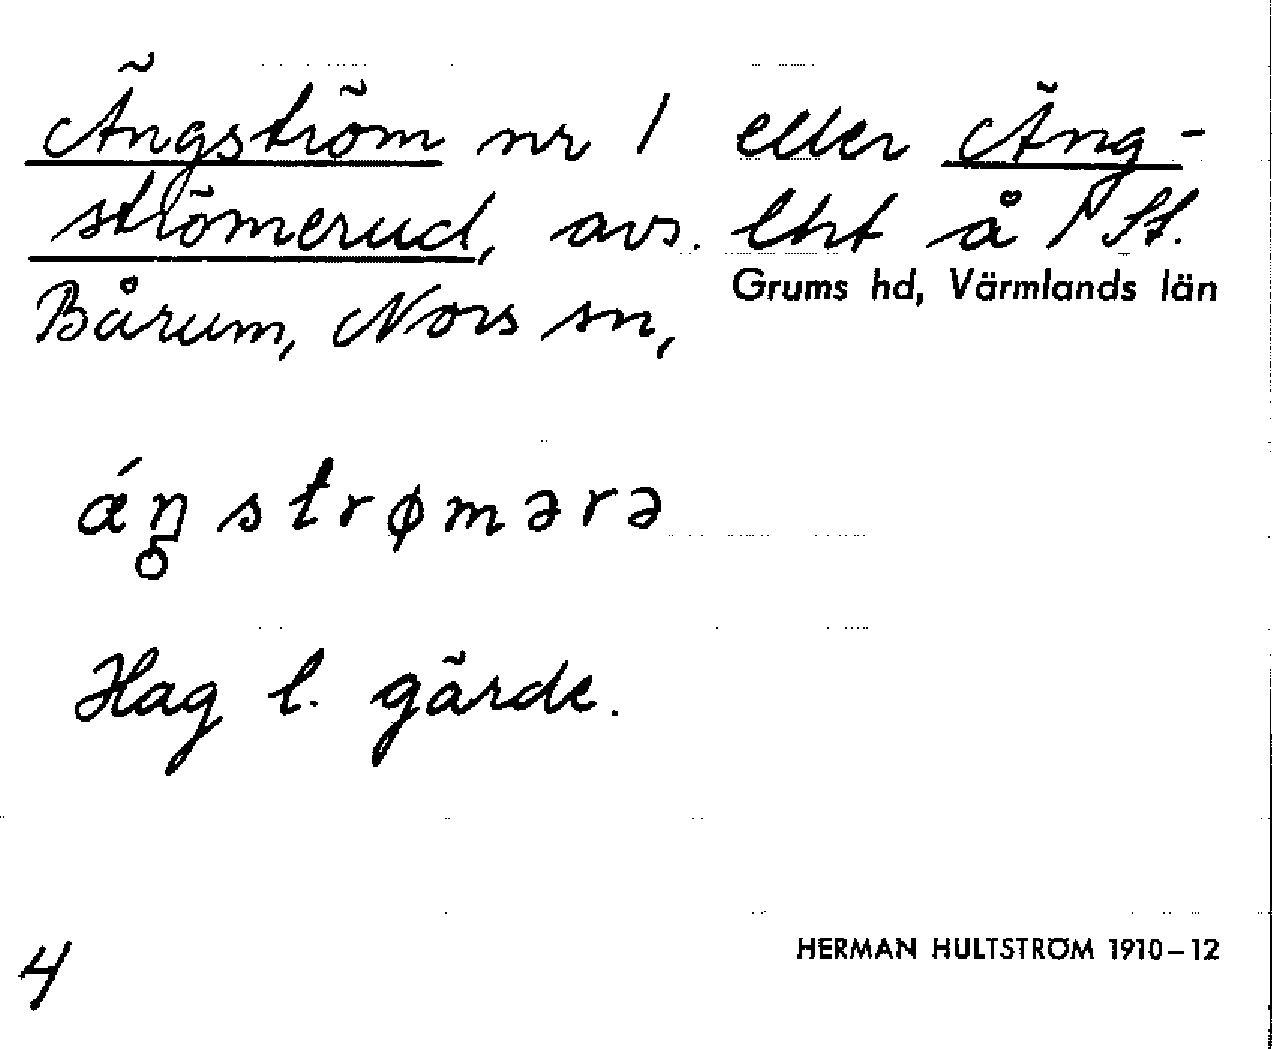 Ängström nr 1 eller Äng-
strömerud, avs. lht å 1 St.
Bårum, Nors sn, Grums hd, Värmlands län
áŋstrømərə
Hag l. gärde.
4
HERMAN HULTSTRÖM 1910–12